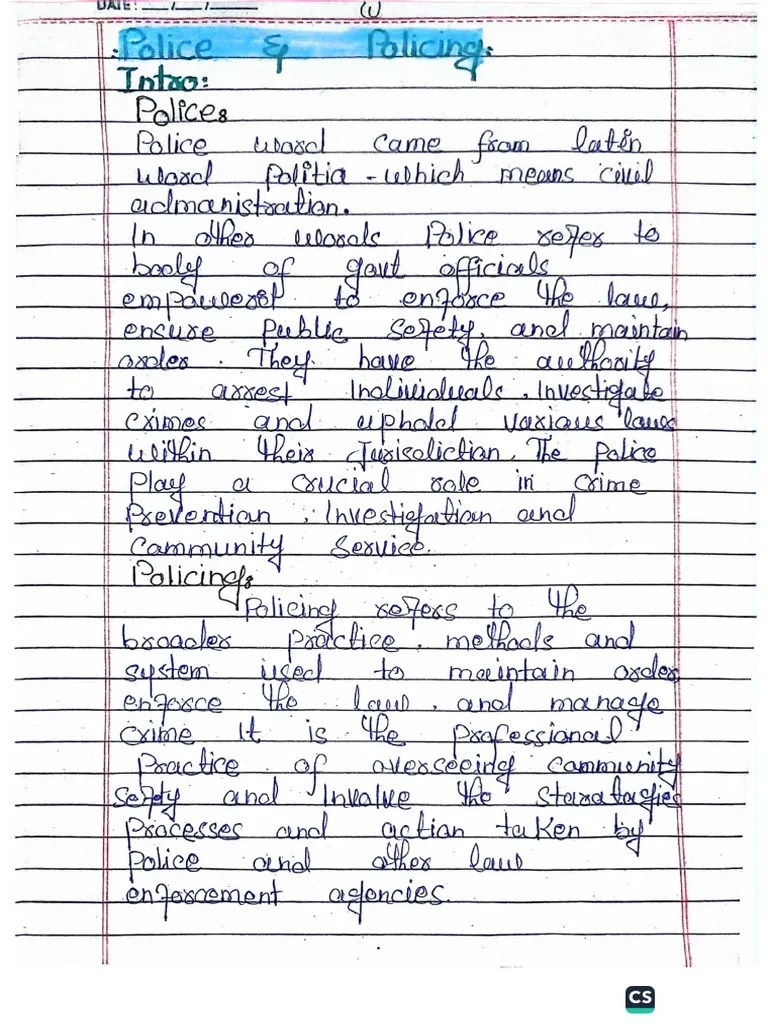 DATE: __/__/____
(1)
:Police & Policing:
Intro:
Police:
Police word came from latin
word Politia - which means civil
admanistration.
In other words Police refer to
body of govt officials
empowerst to enforce the law,
ensure Public Sefety, and maintain
order. They have the authority
to arrest Individuals, Investigate
crimes and uphold various laws
within their Jurisdiction. The police
Play a crucial role in crime
Prevention, Investigation and
Community Service.
Policing:
Policing refers to the
broader practice, methods and
system used to maintain order
enforce the law, and manage
crime It is the professional
Practice of overseeing community
sefety and Involve the staratagies
Processes and action taken by
Police and other law
enforcement agencies.
CS